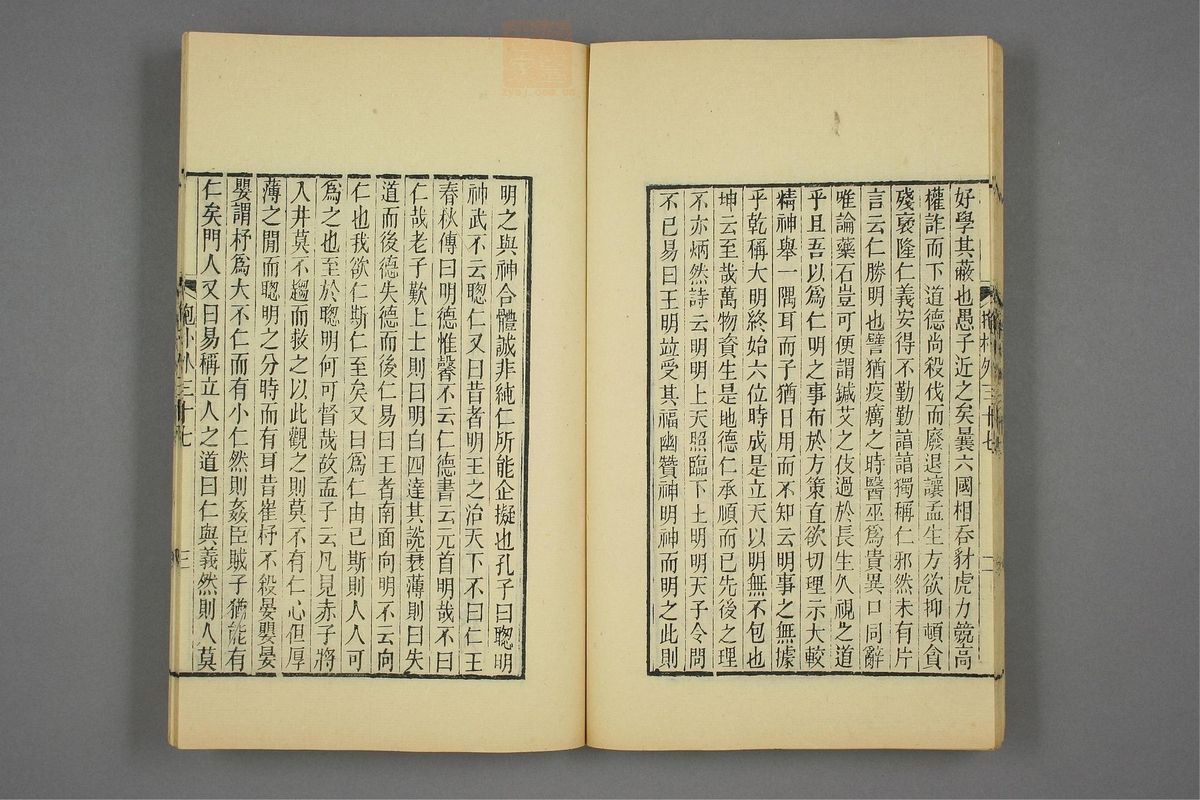 好學其蔽也愚子近之矣曩六國相吞豺虎力競高
權詐而下道德尚殺伐而廢退讓孟生方欲抑頓貪
殘褒隆仁義安得不勤勤諄諄獨稱仁邪然未有片
言云仁勝明也譬猶疫癘之時醫巫為貴異口同辭
唯論藥石豈可便謂鍼艾之伎過於長生久視之道
乎且吾以為仁明之事布於方策直欲切理示大較
精神舉一隅耳而子猶日用而不知云明事之無據
乎乾稱大明終始六位時成是立天以明無不包也
坤云至哉萬物資生是地德仁承順而已先後之理
不亦炳然詩云明明上天照臨下土明明天子令問
不已易曰王明竝受其福幽贊神明神而明之此則
抱朴外三十七
二
明之與神合體誠非純仁所能企擬也孔子曰聰明
神武不云聰仁又曰昔者明王之治天下不曰仁王
春秋傳曰明德惟馨不云仁德書云元首明哉不曰
仁哉老子歎上士則曰明白四達其說衰薄則曰失
道而後德失德而後仁易曰王者南面向明不云向
仁也我欲仁斯仁至矣又曰為仁由己斯則人人可
為之也至於聰明何可督哉故孟子云凡見赤子將
入井莫不趨而救之以此觀之則莫不有仁心但厚
薄之閒而聰明之分時而有耳昔崔杼不殺晏嬰晏
嬰謂杼為大不仁而有小仁然則姦臣賊子猶能有
仁矣門人又曰易稱立人之道曰仁與義然則人莫
抱朴外三十七
三